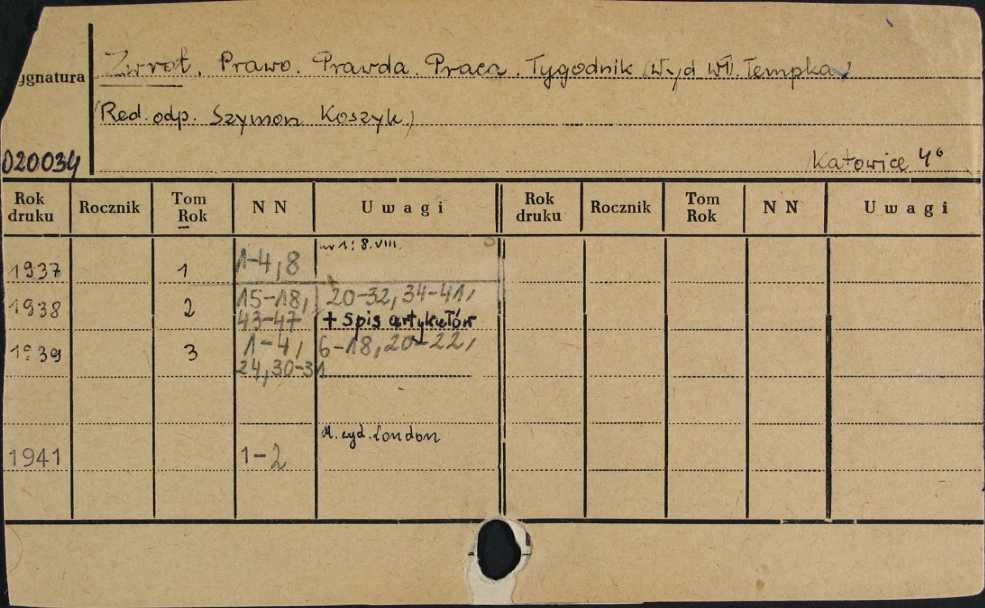 ygnatura Zwrot. Prawo. Prawda. Praca. Tygodnik (Wyd Wł. Tempka)
(Red. odp. Szymon Koszyk)
020034 Katowice 4°
Rok druku Rocznik Tom Rok NN Uwagi Rok druku Rocznik Tom Rok NN Uwagi
nr 1: 8.VIII.
1937 1 1-4, 8
1938 2 15-18, 20-32, 34-41,
43-47 + spis artykułów
1939 3 1-4, 6-18, 20-22,
24, 30-31
London
1941 1-2